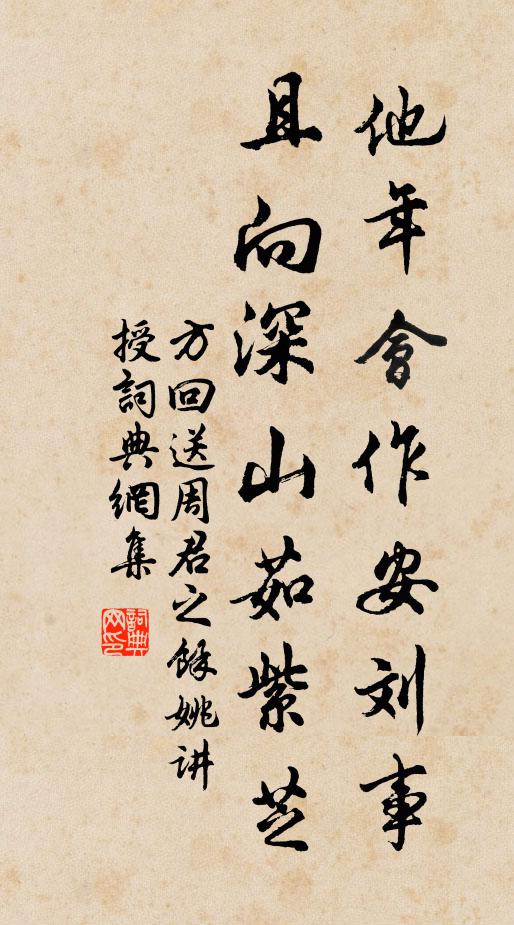 他年會作安刘事
且向深山茹紫芝
方回送周君之餘姚讲
授詞典網集
詞典網印